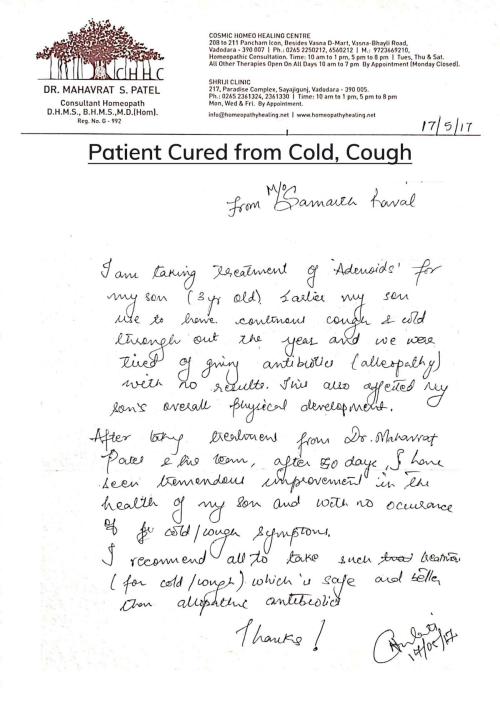 COSMIC HOMEO HEALING CENTRE
208 to 211 Pancham Icon, Besides Vasna D-Mart, Vasna-Bhayli Road,
Vadodara - 390 007 | Ph.: 0265 2250212, 6560212 | M.: 9723669210,
Homeopathic Consultation. Time: 10 am to 1 pm, 5 pm to 8 pm | Tues, Thu & Sat.
All Other Therapies Open On All Days 10 am to 7 pm By Appointment (Monday Closed).
CHHC
DR. MAHAVRAT S. PATEL
Consultant Homeopath
D.H.M.S., B.H.M.S.,M.D.(Hom).
Reg. No. G - 992
SHRIJI CLINIC
217, Paradise Complex, Sayajigunj, Vadodara - 390 005.
Ph.: 0265 2361324, 2361330 | Time: 10 am to 1 pm, 5 pm to 8 pm
Mon, Wed & Fri. By Appointment.
info@homeopathyhealing.net | www.homeopathyhealing.net
17/5/17
Patient Cured from Cold, Cough
from M/o Samarth Raval
I am taking treatment of 'Adenoids' for
my son (3 yr old). Earlier my son
use to have continous cough & cold
through out the year and we were
tired of giving antibiotics (alleopathy)
with no results. This also affected my
son's overall physical development.
After taking treatment from Dr. Mahavrat
Patel & his team, after 50 days, I have
seen tremendous improvement in the
health of my son and with no occurance
of cold/cough symptoms.
I recommend all to take such
(for cold/cough) which is safe and better
than allopathic antibiotics
Thanks!
17/05/17